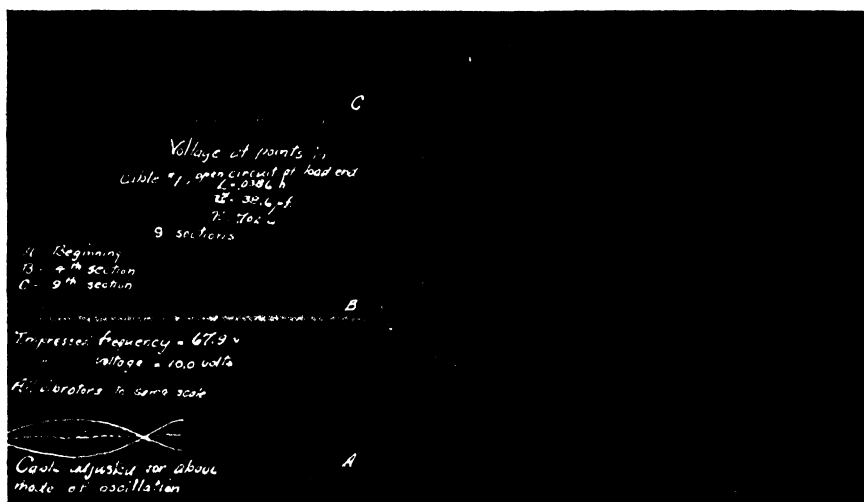 C
Voltage at points in
Cable #1, open circuit at load end
L = .0386 h
C = 38.6 μf.
9 sections
A - Beginning
B - 4th section
C - 9th section
B
Impressed frequency = 67.9 ~
" voltage = 10.0 volts
All vibrators to same scale
Cable adjusted for above
A
mode of oscillation